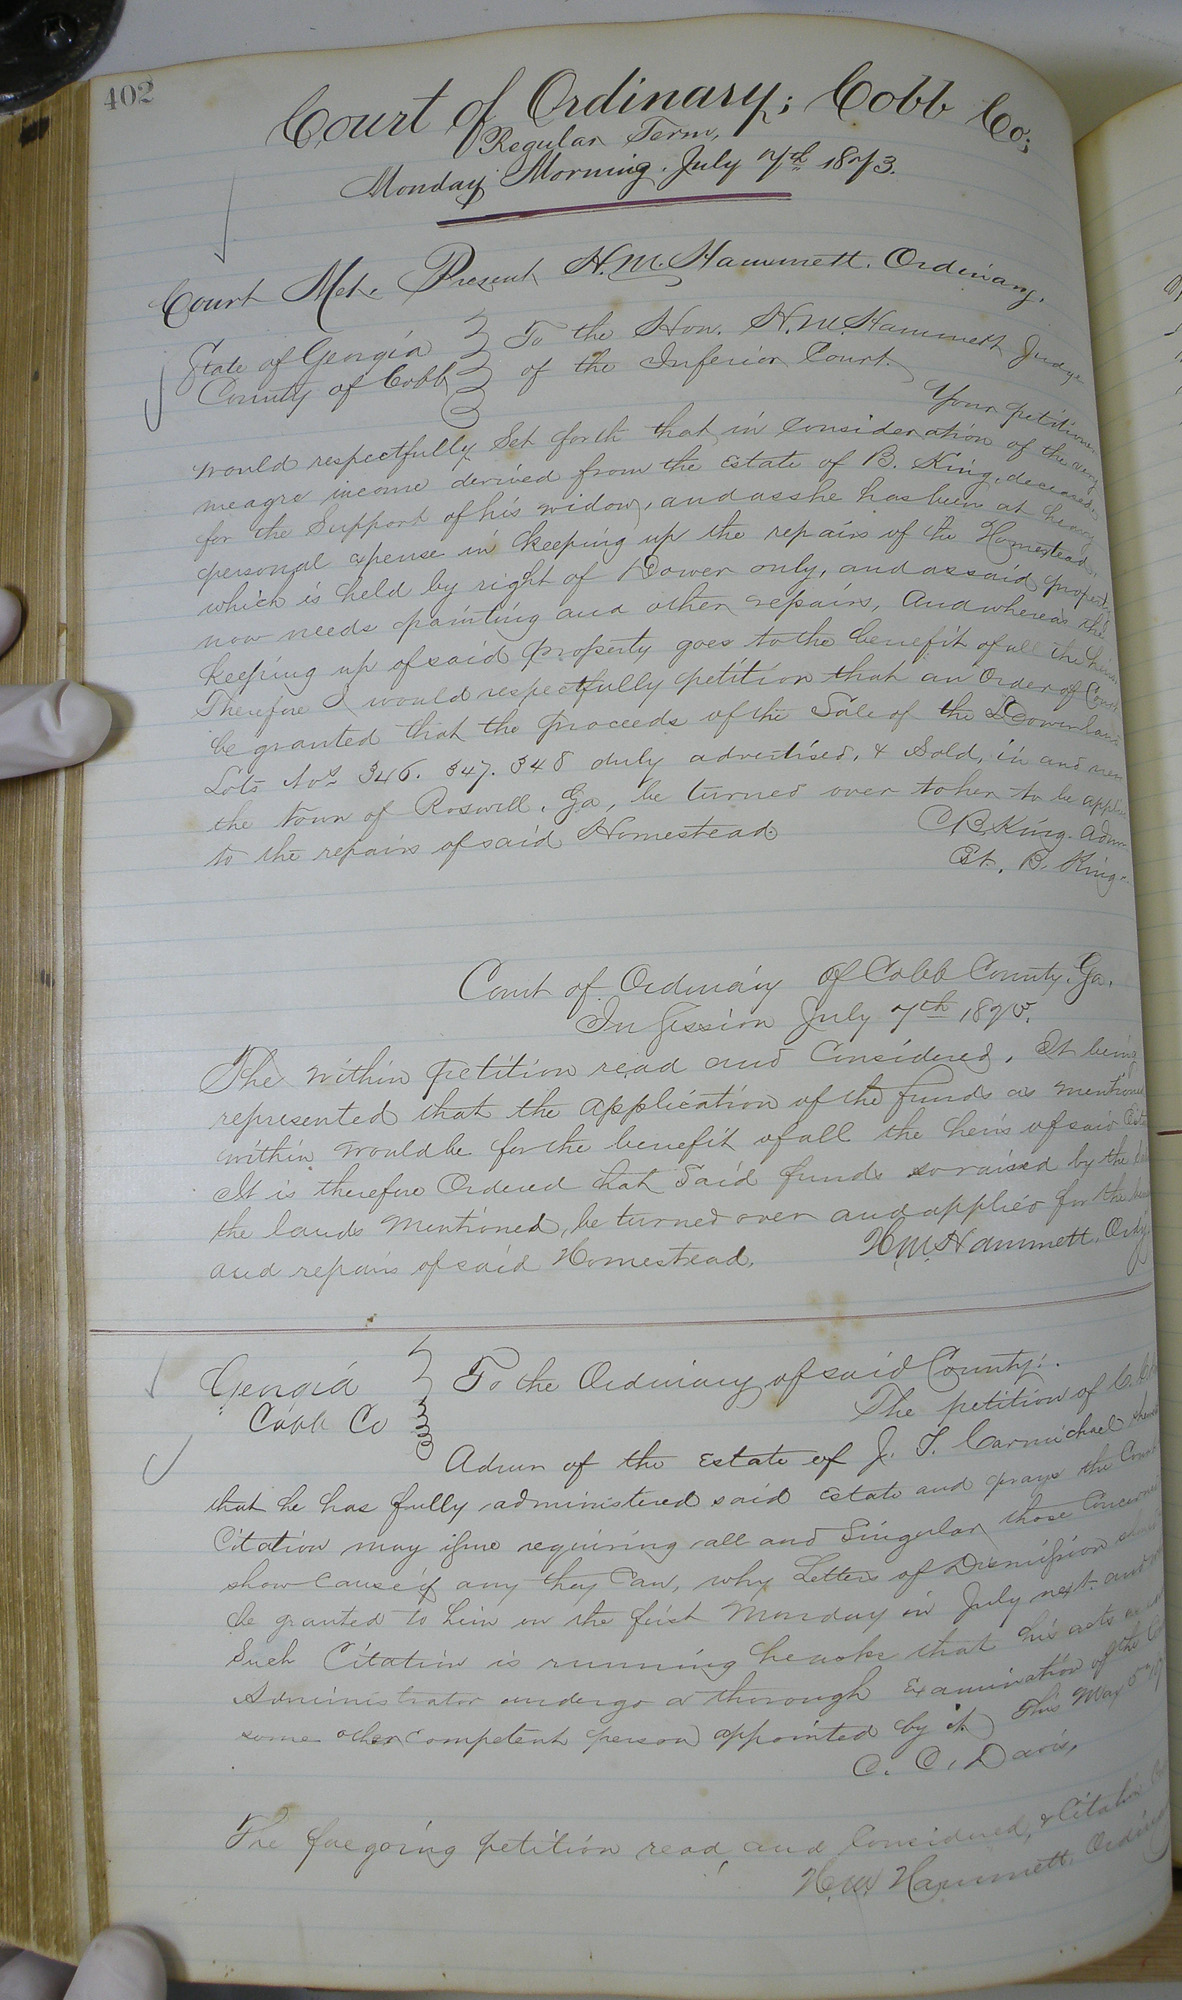 402
Court of Ordinary; Cobb Co;
Regular Term,
Monday Morning. July 7th 1873.
Court Met. Present H. M. Hammett. Ordinary.
State of Georgia To the Hon. H. M. Hammett Judge
County of Cobb of the Inferior Court.
Your petitioner
would respectfully Set forth that in consideration of the very
meagre income derived from the Estate of B. King, deceased,
for the Support of his widow, and as she has been at heavy
personal expense in keeping up the repairs of the Homestead,
which is held by right of Dower only, and as said property
now needs painting and other repairs, And whereas the
keeping up of said property goes to the benefit of all the heirs,
Therefore I would respectfully petition that an Order of Court
be granted that the proceeds of the Sale of the Dower land
Lots Nos 346. 347. 348 duly advertised, & Sold, in and near
the town of Roswell, Ga, be turned over to her to be applied
to the repairs of said Homestead
C B King. Admr
Est. B. King
Court of Ordinary of Cobb County. Ga.
In Session July 7th
The within petition read and Considered. It being
represented that the application of the funds as mentioned
within would be for the benefit of all the heirs of said Est
It is therefore Ordered that Said funds so raised by the
the lands Mentioned, be turned over and applied for the
and repairs of said Homestead. H M Hammett. Ordy.
Georgia To the Ordinary of said County.
Cobb Co The petition of C. C.
Admr of the Estate of J. T. Carmichael
that he has fully administered said Estate and prays the Court
Citation may issue requiring all and Singular those Concerned
show cause if any they can, why Letters of Dismission
be granted to him on the first Monday in July next and
Such Citation is running he asks that his acts as
Administrator undergo a thorough Examination of the
some other competent person appointed by it This May
C. C. Davis,
The foregoing petition read and Considered, & Citation
H. M Hammett, Ordinary